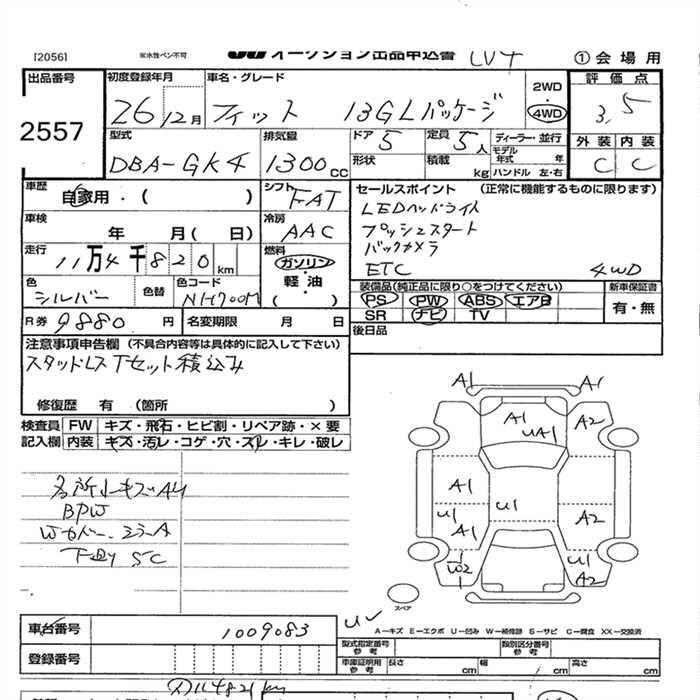 [2056] ※水性ペン不可 JU オークション出品申込書 LV4 ①会場用
出品番号 初度登録年月 車名・グレード 2WD 評価点
2557 26 12月 フィット 13GLパッケージ 4WD 3.5
型式 排気量 ドア 5 定員 5人 ディーラー・並行 外装 内装
DBA-GK4 1300cc 形状 積載 kg モデル年式 年 ハンドル 左・右 C C
車歴 シフト セールスポイント (正常に機能するものに限ります)
自家用・( ) FAT LEDヘッドライト
車検 冷房 プッシュスタート
年 月( 日) AAC バックカメラ
走行 11万4千820km 燃料 ガソリン・軽油・ ETC 4WD
色 色替 色コード 装備品(純正品に限り○をつけてください) 新車保証書
シルバー NH700M PS PW ABS エアB 有・無
R券 9880円 名変期限 月 日 SR ナビ TV
注意事項申告欄 (不具合内容等は具体的に記入して下さい) 後日品
スタッドレスTセット積込み
修復歴 有 (箇所 )
検査員 FW キズ・飛石・ヒビ割・リペア跡・×要
記入欄 内装 キズ・汚レ・コゲ・穴・スレ・キレ・破レ
A1 A1
A1 UA1 A2
A1 U1
U1 A1 A2
W2 U1 A2
各所小キズA4
BPW
Wカバー、ミラーA
下廻りSC
スペア
車台番号 1009083
A-キズ E-エクボ U-凹み W-補修跡 S-サビ C-腐食 XX-交換済
登録番号 型式指定番号 参考 類別区分番号 参考
車庫証明用 参考 長さ cm 幅 cm 高さ cm